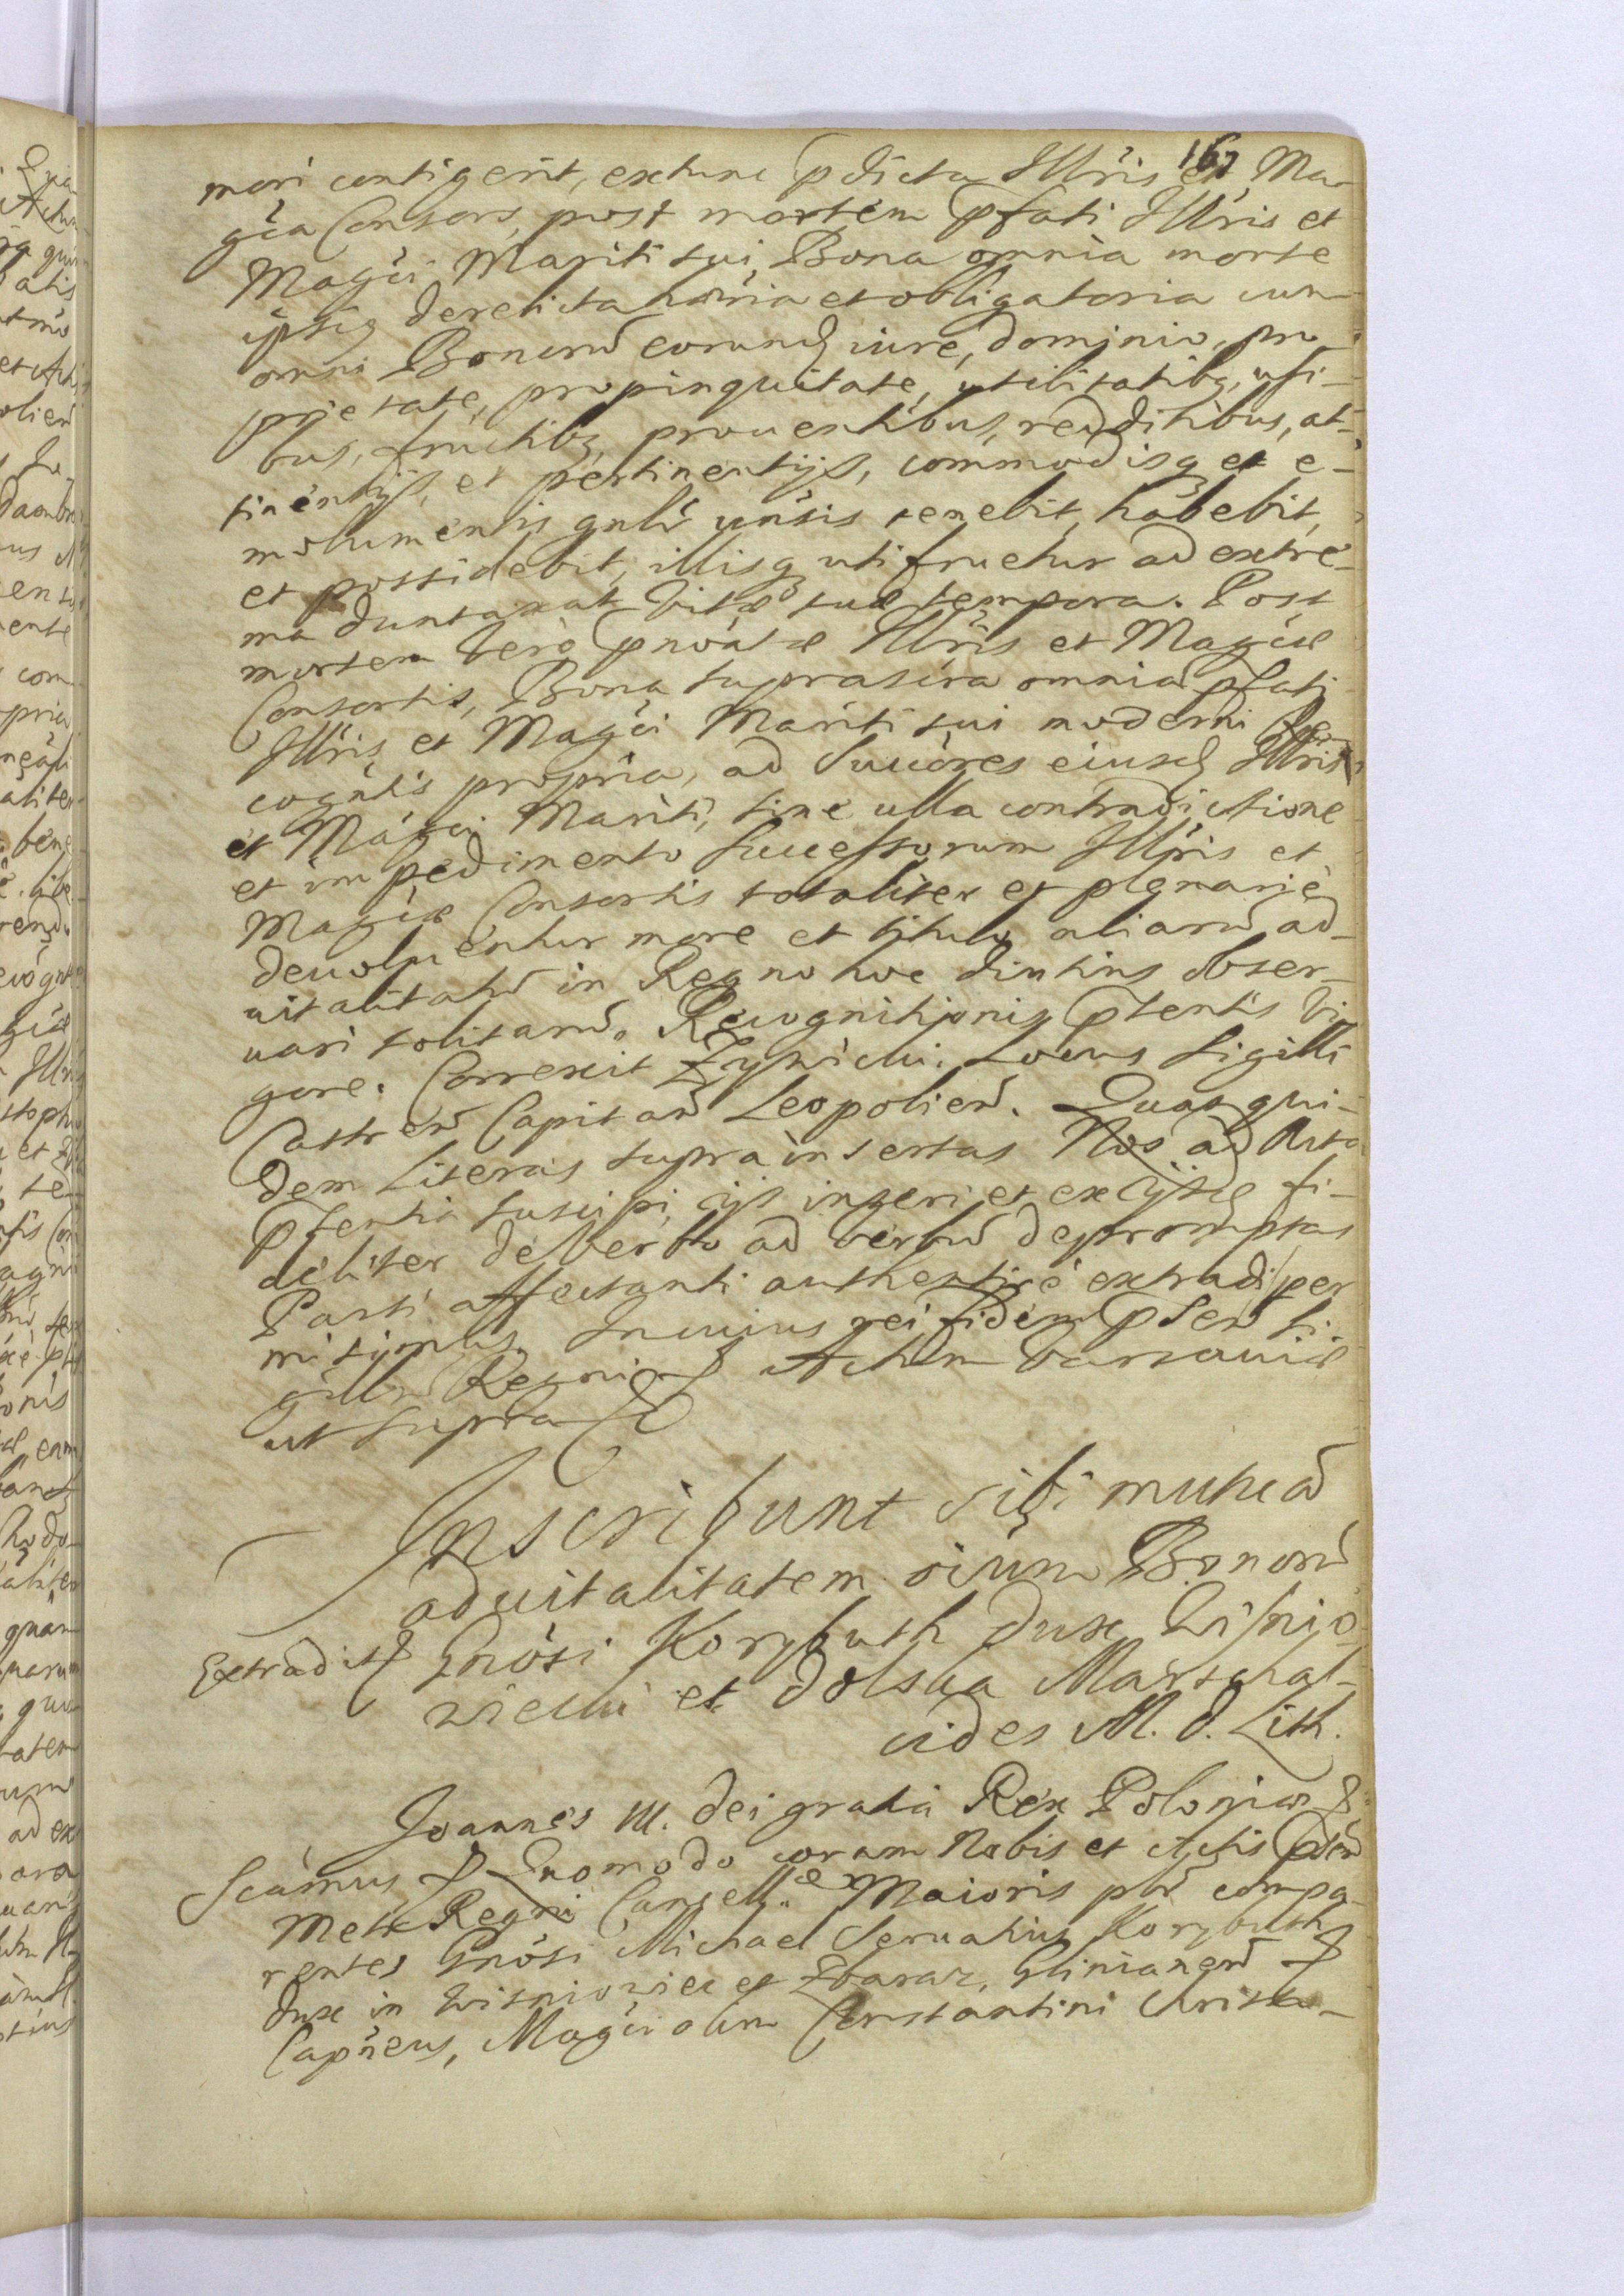 167
mori contigerit, extunc pdicta Illris et Ma-
gca Consors, post mortem pfati Illris et
Magci Mariti sui, Bona omnia morte
ipsiq derelicta hæria et obligatoria cum
omni Bonorū eorund iure, dominio, pro-
prietate, propinquitate, utilitatibq, usi-
bus, fructibq, prouentibus, redditibus, at-
tinentijs, et pertinentijs, commodisq et e-
molumentis gnlr uñsis tenebit, habebit,
et possidebit, illisq uti fruetur ad extre-
ma duntaxat vitæ suæ tempora. Post
mortem verò pnoatæ Illris et Magcæ
Consortis, Bona suprascra omnia pfati
Illris et Magci Mariti sui moderni Re-
cogntis propria, ad Succōres eiusd Illris
et Magci Mariti, sine ulla contradictione
et impedimento Successorum Illris et
Magcæ Consortis totaliter et plenariè
deuoluentur more et titulo aliarū ad-
uitalitatū in Regno hoc diutius obser-
uari solitarū. Recognitionis pntentis vi-
gore. Correxit Żywicki. Locus Sigilli
Castren Capitan Leopolien. Quas qui-
dem Literas supra insertas Nos ad Acta
pntentia suscipi, ijs inseri et ex ijsd fi-
deliter de verbo ad verbū depromptas
Parti affectanti authenticè extradi per
misimus. In cuius rei fidem pnten si-
gillū Regni Actum Varsauiæ
ut supra
Inscribunt sibi mutuā
aduitalitatem oium Bonorū
Extradit Gnosi Korybuth Dux Wisnio-
wiecki et Dolska Marschal-
cides M. D. Lith.
Joannes III. Dei gratia Rex Poloniæ
Scimus Quomodo coram Nobis et Actis pntū
Metr Regni Cancellæ Maioris psr compa-
rentes Gnosi Michael Seruatius Korybuth
Dux in Wisniowiec et Zbaraz, Glinianen
Capneus, Magci olim Constantini Christo-